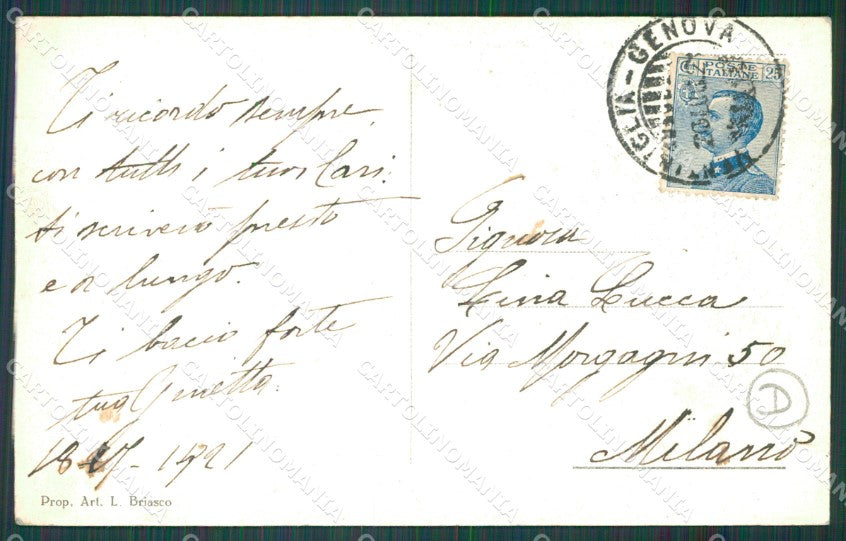 Ti ricordo sempre
con tutti i tuoi Cari.
ti scriverò presto
e a lungo.
Ti bacio forte
tua Ginetta.
18-7-1921
Prop. Art. L. Briasco
VENTIMIGLIA-GENOVA
POSTE
ITALIANE
25
Signora
Lina Lucca
Via Morgagni 50
Milano
A
CARTOLINOMANIA